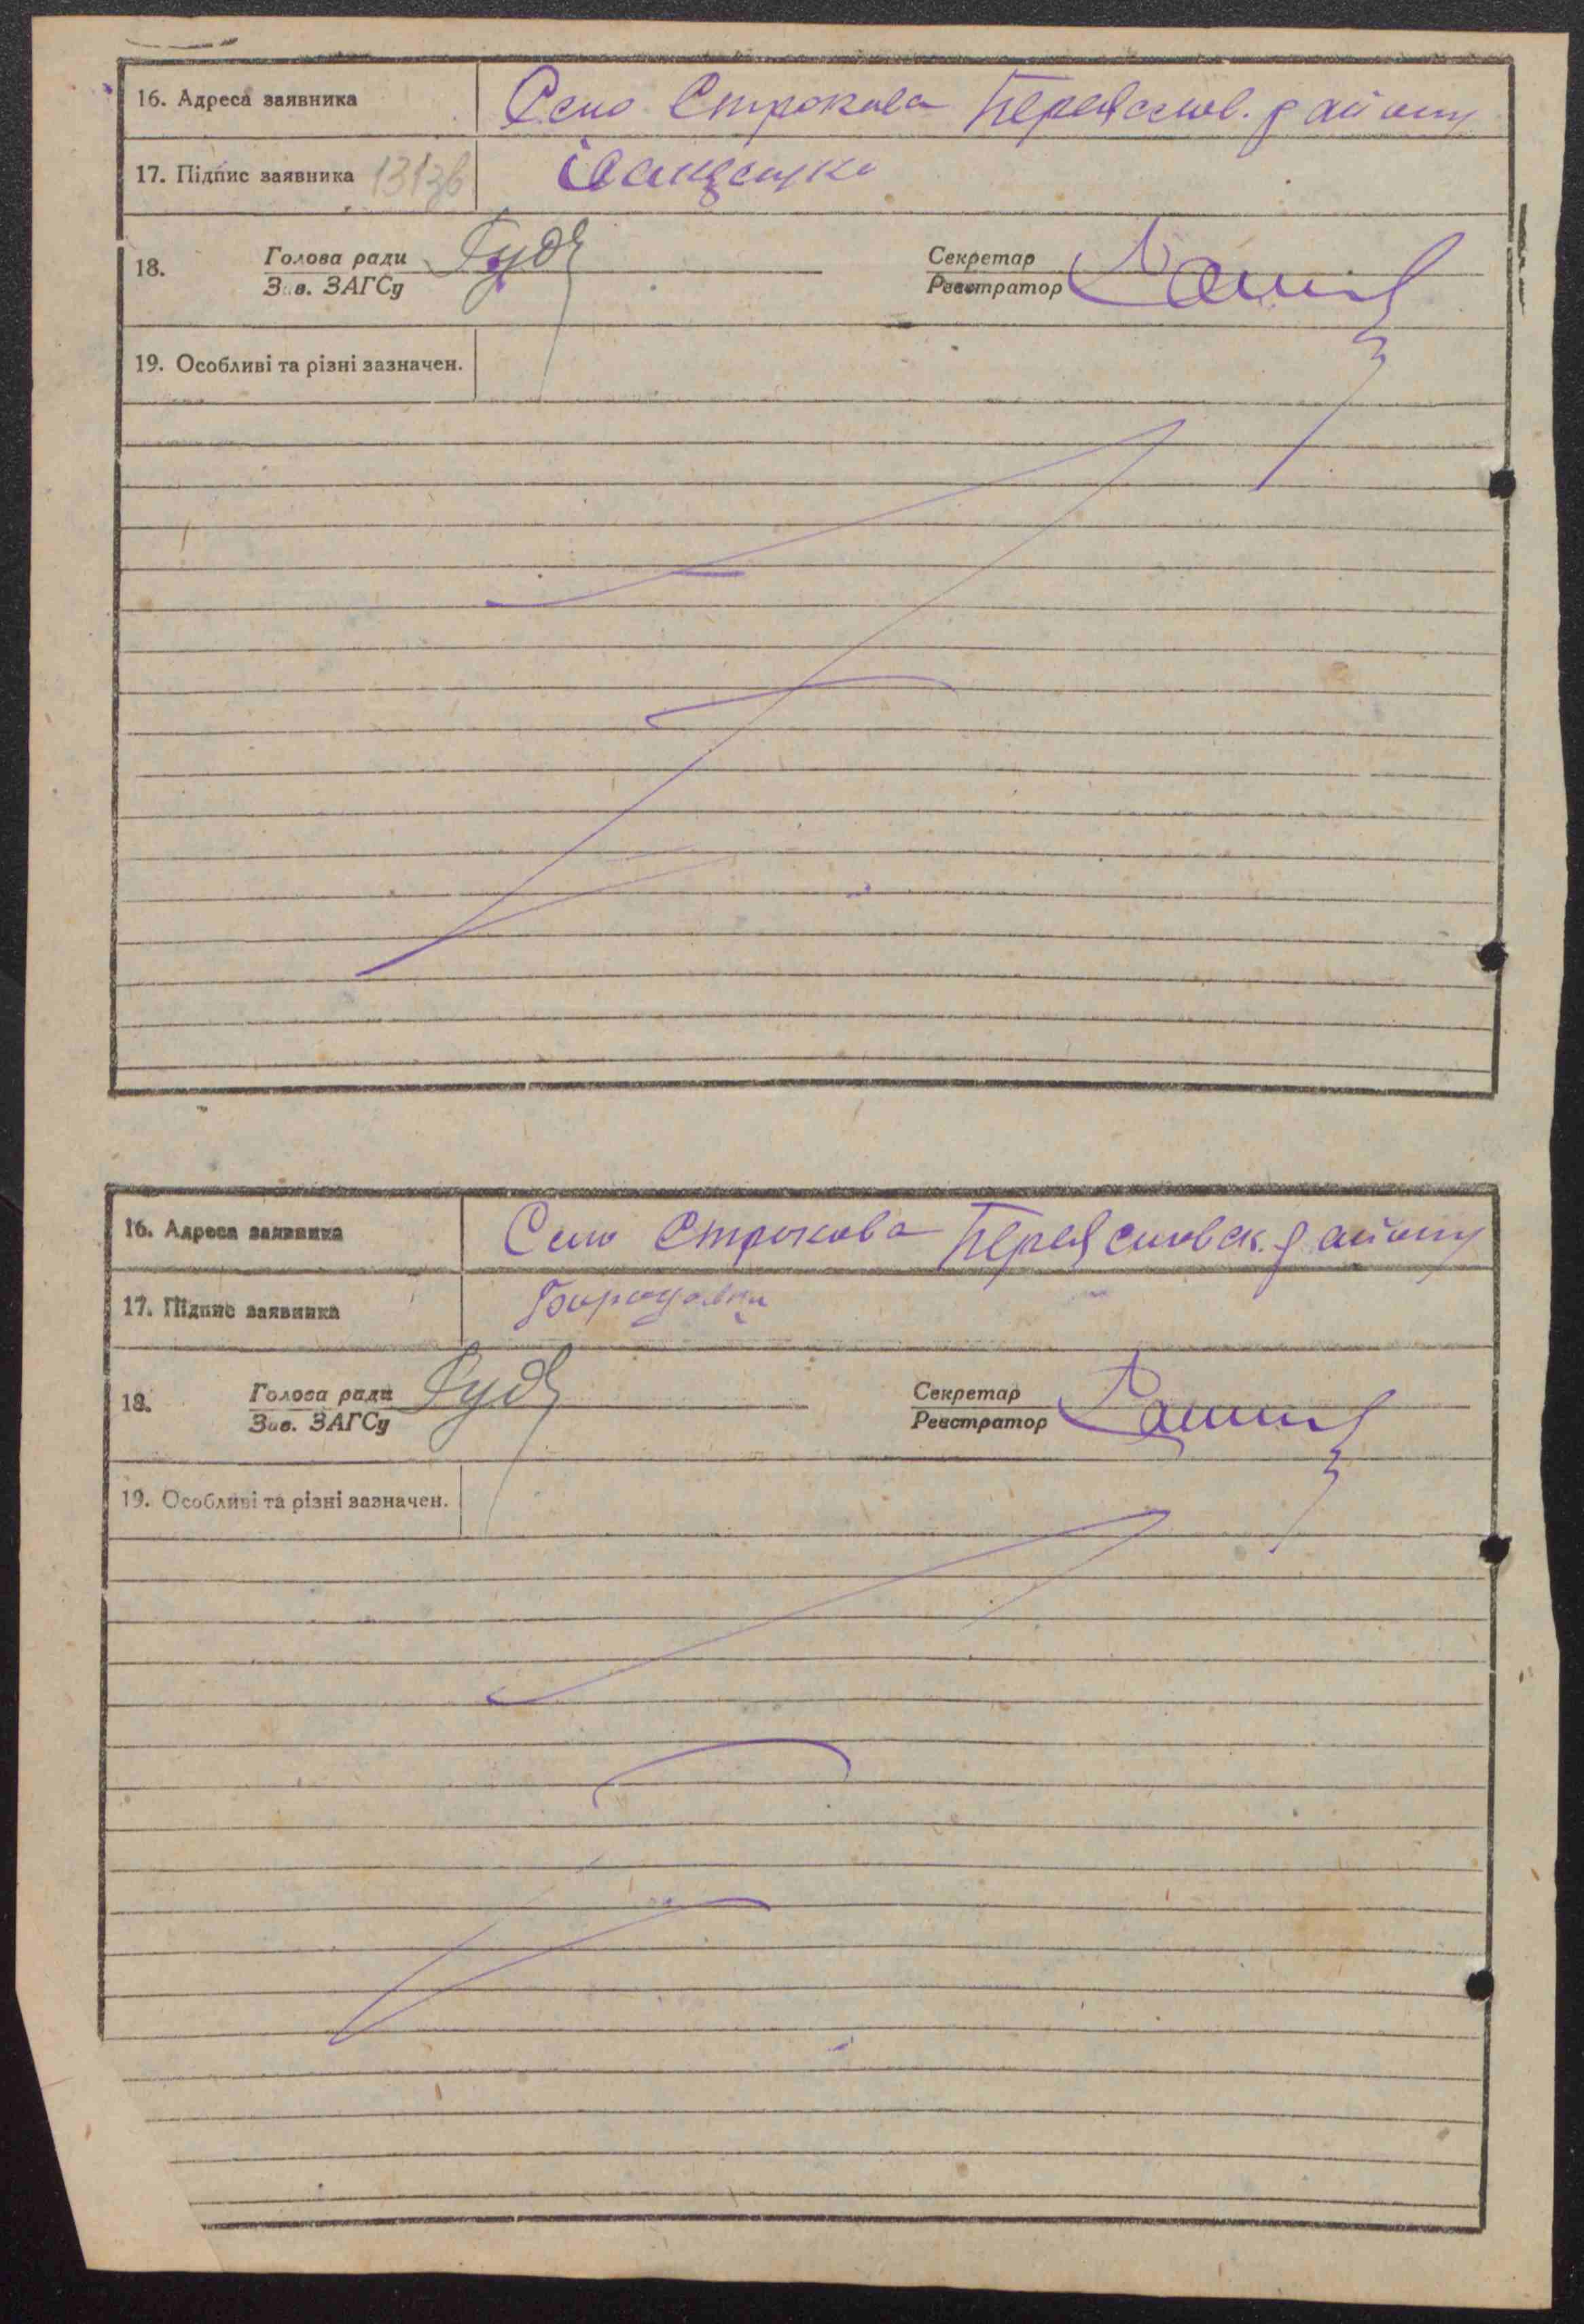 16. Адреса заявника Село Строкова Переяслов. району
17. Підпис заявника
18. Голова ради Секретар
Зав. ЗАГСу Реєстратор
19. Особливі та різні зазначен.
16. Адреса заявника Село Строкова Переясловск. району
17. Підпис заявника
18. Голова ради Секретар
Зав. ЗАГСу Реєстратор
19. Особливі та різні зазначен.